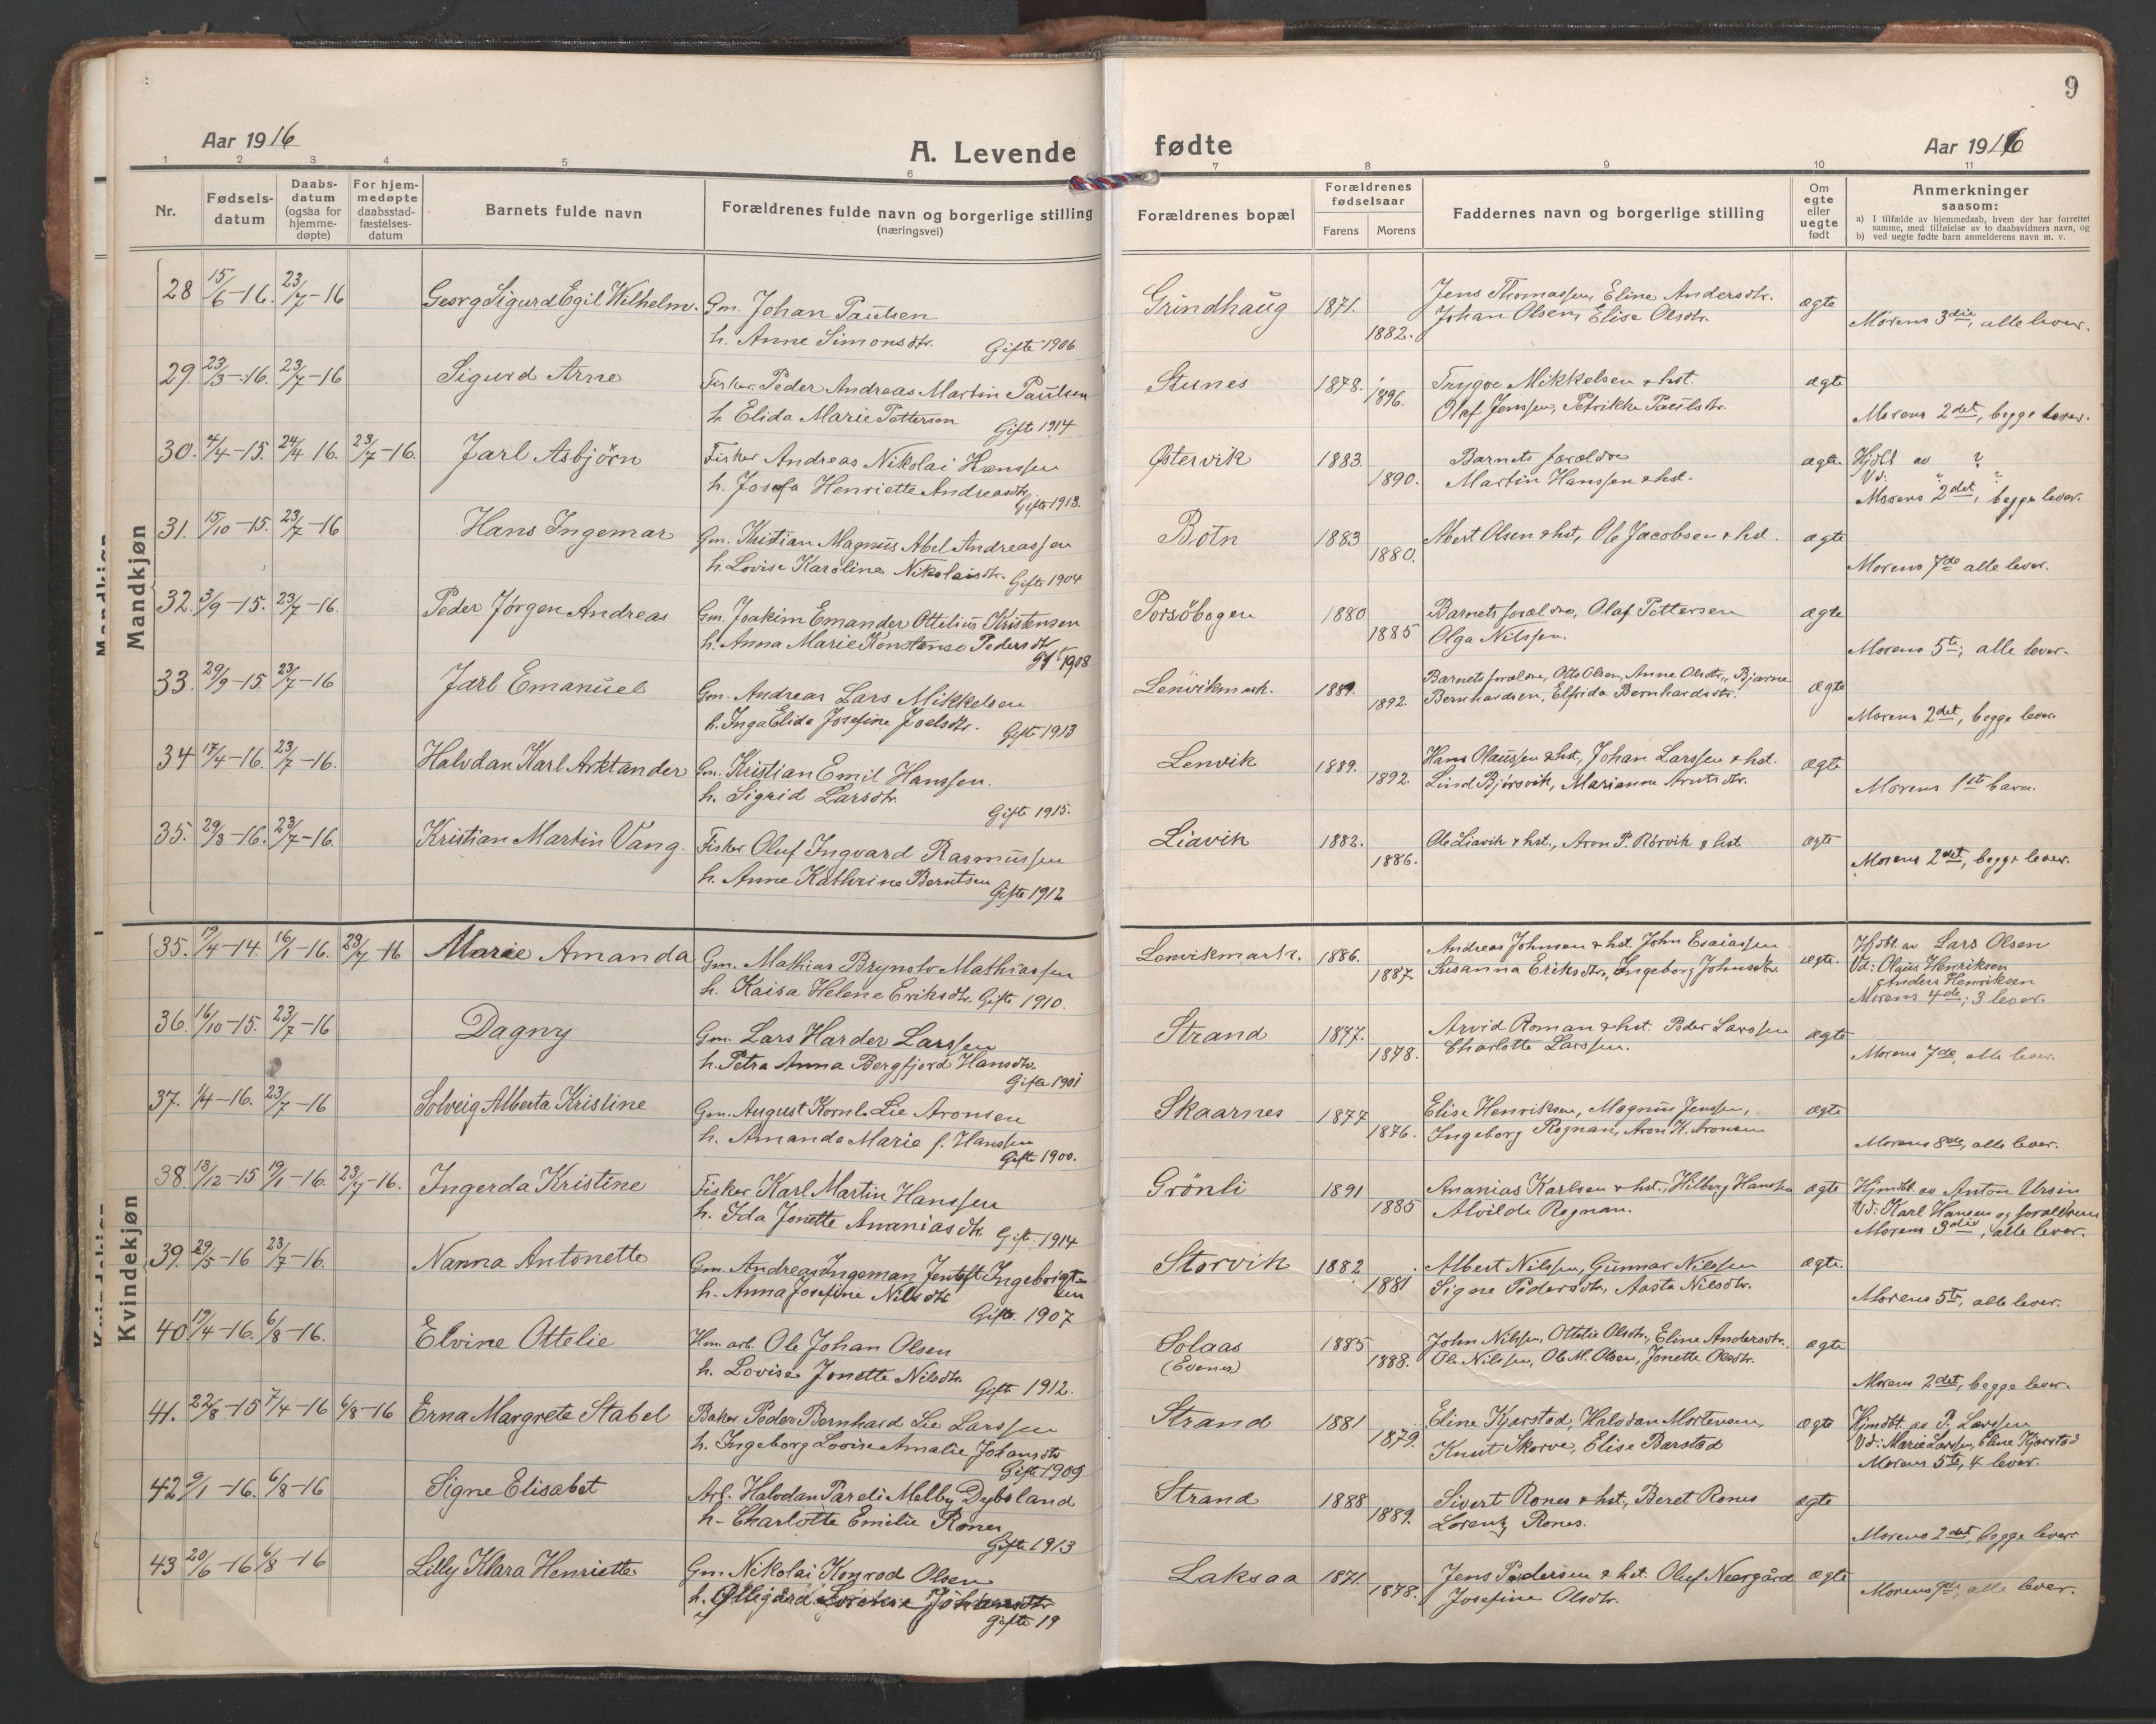 9
Aar 1916
A. Levende
fødte
Aar 1916
1 2 3 4 5 6 7 8 9 10 11
Nr.
Fødsels-
datum
Daabs-
datum
(ogsaa for
hjemme-
døpte)
For hjem-
medøpte
daabsstad-
fæstelses-
datum
Barnets fulde navn
Forældrenes fulde navn og borgerlige stilling
(næringsvei)
Forældrenes bopæl
Forældrenes
fødselsaar
Farens Morens
Faddernes navn og borgerlige stilling
Om
egte
eller
uegte
født
Anmerkninger
saasom:
a) I tilfælde av hjemmedaab, hvem der har forrettet
samme, med tilføielse av to daabsvidners navn, og
b) ved uegte fødte barn anmelderens navn m. v.
Mandkjøn
28 15/6-16. 23/7-16 Georg Sigurd Egil Wilhelm. Gm. Johan Paulsen Grindhaug 1871. Jens Thomassen, Eline Andersdtr. ægte
h. Anne Simonsdtr. Gifte 1906 1882. Johan Olsen, Elise Olsdtr. Morens 3die, alle lever.
29. 23/3-16. 23/7-16 Sigurd Arne Fisker Peder Andreas Martin Paulsen Stunes 1878. Trygve Mikkelsen & hst. ægte
h. Elida Marie Pettersen Gifte 1914 1896. Olaf Jenssen, Petrikke Paulsdtr. Morens 2det, begge lever.
30. 4/4-15. 24/4 16. 23/7-16. Jarl Asbjörn Fisker Andreas Nikolai Hanssen Østervik 1883. Barnets forældre ægte Hjdbt av ?
h. Josefa Henriette Andreasdtr. Gifte 1913. 1890. Martin Hanssen & hst. Vd: " ?
Morens 2det, begge lever.
31. 15/10-15. 23/7-16 Hans Ingemar Gm. Kristian Magnus Abel Andreassen Botn 1883 Albert Olsen & hst, Ole Jacobsen & hst. ægte
h. Lovise Karoline Nikolaisdtr. Gifte 1904 1880. Morens 7de alle lever.
32. 3/9-15. 23/7-16. Peder Jørgen Andreas Gm. Joakim Emander Ottelius Kristensen Porsöbogen 1880 Barnets forældre, Olaf Pettersen ægte
h. Anna Marie Konstanse Pedersdtr. Gft 1908 1885 Olga Nilssen. Morens 5te, alle lever.
33. 29/9-15. 23/7-16 Jarl Emanuel Gm. Andreas Lars Mikkelsen Lenvikmark. 1889. Barnets forældre, Otto Olsen, Anne Olsdtr., Bjarne ægte
h. Inga Elida Josefine Joelsdtr. Gifte 1913 1892. Bernhardsen, Elfrida Bernhardsdtr. Morens 2det, begge lever.
34 17/4-16. 23/7-16. Halvdan Karl Arktander Gm. Kristian Emil Hanssen. Lenvik 1889. Hans Olaussen & hst, Johan Larssen & hst. ægte
h. Sigrid Larsdtr. Gifte 1915. 1892. Lind Bjørsvik, Marianne Arntsdtr. Morens 1ste barn.
35. 29/3-16. 23/7-16. Kristian Martin Vang. Fisker Oluf Ingvard Rasmussen Liavik 1882. Ole Liavik & hst., Aron P. Rörvik & hst ægte
h. Anne Kathrine Berntsen Gifte 1912 1886. Morens 2det, begge lever.
Kvindekjøn
35. 19/4-14. 16/1-16. 23/7-16 Marie Amanda Gm. Mathias Brynolv Mathiassen Lenvikmark. 1886. Andreas Johnsen & hst. John Esaiassen ægte. Hjdbt. av Lars Olsen
h. Kaisa Helene Eriksdtr. Gifte 1910. 1887. Susanna Eriksdtr., Ingeborg Johnsdtr. Vd: Olaus Henriksen
Anders Henriksen
Morens 4de; 3 lever.
36. 16/10-15. 23/7-16 Dagny Gm. Lars Harder Larssen Strand 1877. Arvid Roman & hst. Peder Larssen ægte
h. Petra Anna Bergfjord Hansdtr. Gifte 1901 1878. Charlotte Larssen. Morens 7de, alle lever.
37. 1/4-16. 23/7-16 Solveig Alberta Kristine Gm. August Kornl. Lie Aronsen Skaarnes 1877 Elise Henriksen, Magnus Jenssen, ægte
h. Amanda Marie f. Hanssen Gifte 1900. 1876. Ingeborg Rognan, Aron K. Aronsen Morens 8de, alle lever.
38. 13/12-15 19/1-16. 23/7-16. Ingerda Kristine Fisker Karl Martin Hanssen Grönli 1891 Ananias Karlsen & hst., Hilberg Hanssen ægte Hjmdbt. av Anton Ursin
h. Ida Jonette Ananiasdtr. Gifte 1914 1885 Alvilde Rognan. Vd: Karl Hansen og forældrene
Morens 3die, alle lever.
39. 29/5-16 23/7-16. Nanna Antonette Gm. Andreas Ingeman Jentoft Ingebrigtsen Storvik 1882 Albert Nilssen, Gunnar Nilssen ægte.
h. Anna Josefine Nilsdtr. Gifte 1907 1881 Signe Pedersdtr, Aasta Nilsdtr. Morens 5te, alle lever.
40. 19/4-16. 6/8-16. Elvine Ottelie Hm. arb. Ole Johan Olsen Solaas (Evenes) 1885 John Nilssen, Ottelie Olsdtr., Eline Andersdtr. ægte
h. Lovise Jonette Nilsdtr. Gifte 1912. 1888. Ole Nilssen, Ole M. Olsen, Jonette Olsdtr. Morens 2det, begge lever.
41. 22/8-15 7/4-16 6/8-16 Erna Margrete Stabel Baker Peder Bernhard Lie Larssen Strand 1881 Eline Kjærstad, Halvdan Mortensen, ægte Hjmdbt. av P. Larssen
h. Ingeborg Lovise Amalie Johansdtr Gifte 1909 1879. Knut Skorve, Elise Barstad Vd: Marie Larssen, Eline Kjærstad
Morens 5te, 4 lever.
42 9/1-16. 6/8-16 Signe Elisabet Arb. Halvdan Pareli Melby Dybsland Strand 1888 Sivert Rones & hst., Beret Rones ægte
h. Charlotte Emilie Rones Gifte 1913 1889. Lorentz Rones. Morens 2det, begge lever.
43 20/6-16 6/8-16 Lilly Klara Henriette Gm. Nikolai Konrod Olsen Laksaa 1871. Jens Pedersen & hst. Oluf Neergård ægte
h. Johansdtr Gifte 19 1878. Josefine Olsdtr. Morens 9de, alle lever.